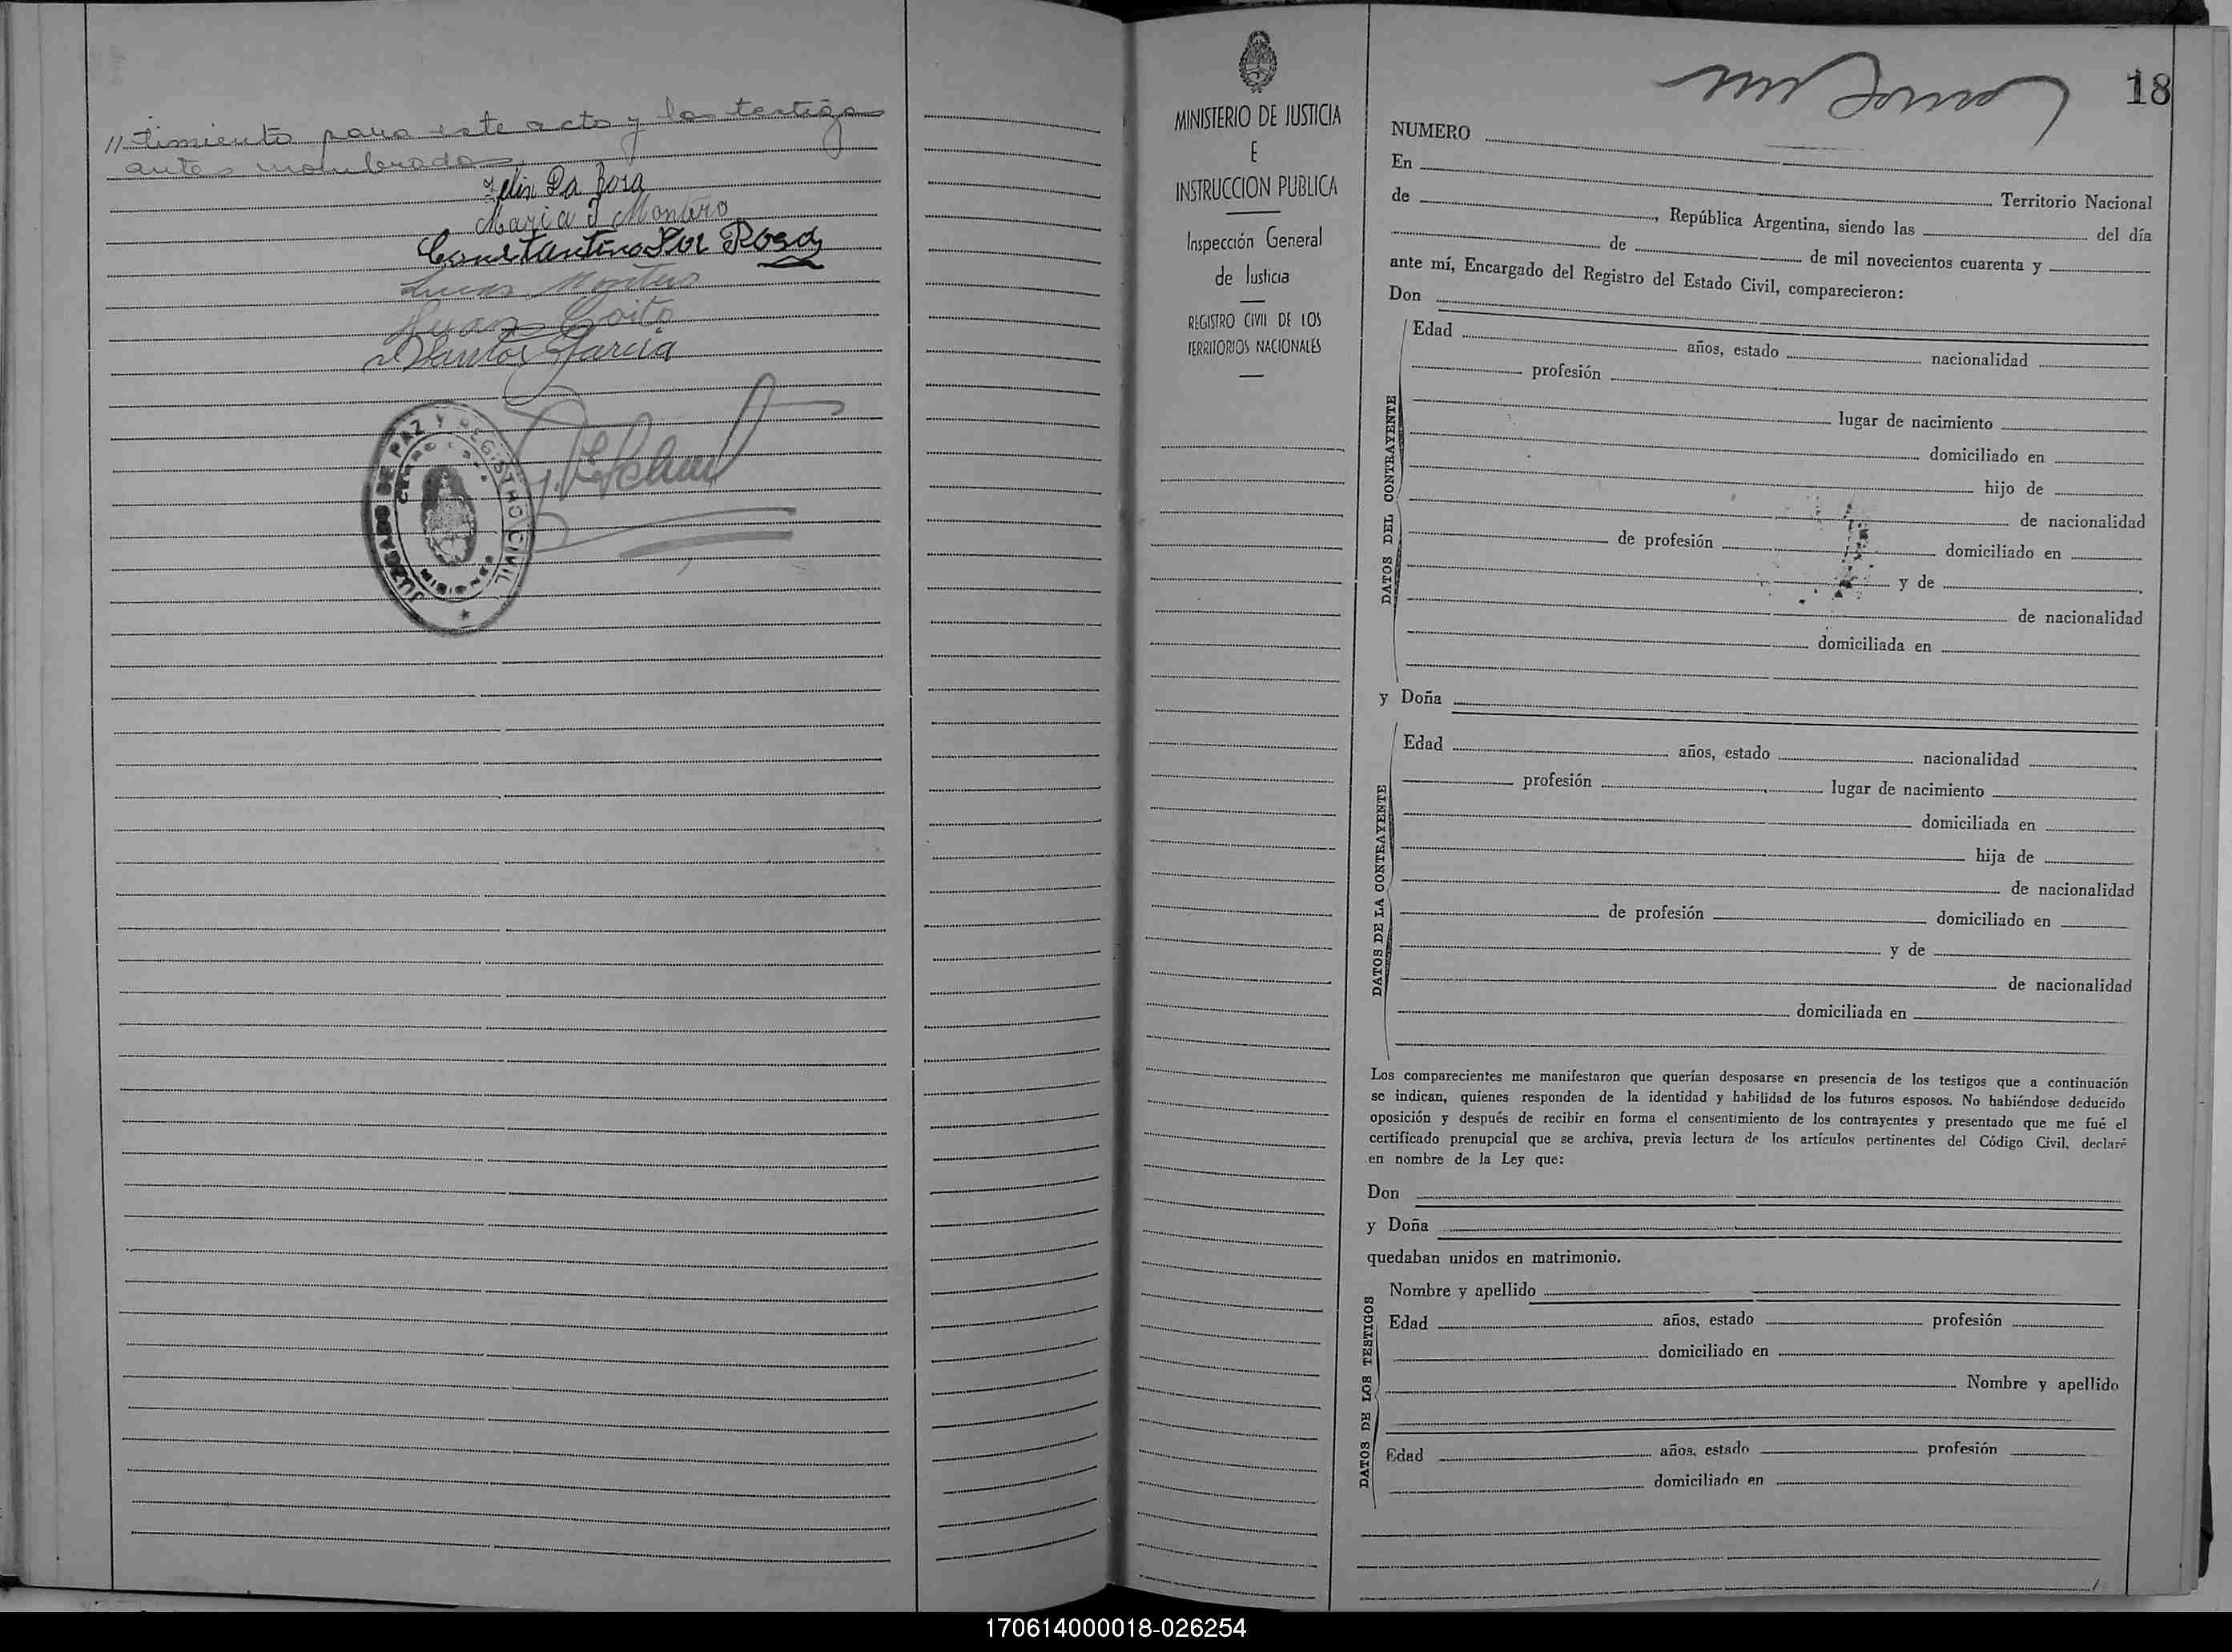 // timiento para este acto y los testigos
antes nombrados.
Felix Da Rosa
Maria J Montero
Constantino Da Rosa
Lucas Montero
Juan Goito
Santos Garcia
JUZGADO DE PAZ Y REGISTRO CIVIL
MINISTERIO DE JUSTICIA
E
INSTRUCCION PUBLICA
Inspección General
de Justicia
REGISTRO CIVIL DE LOS
TERRITORIOS NACIONALES
18
NUMERO
En
Territorio Nacional
de , República Argentina, siendo las del día
de de mil novecientos cuarenta y
ante mí, Encargado del Registro del Estado Civil, comparecieron:
Don
DATOS DEL CONTRAYENTE
Edad años, estado nacionalidad
profesión
lugar de nacimiento
domiciliado en
hijo de
de nacionalidad
de profesión domiciliado en
y de
de nacionalidad
domiciliada en
y Doña
DATOS DE LA CONTRAYENTE
Edad años, estado nacionalidad
profesión lugar de nacimiento
domiciliada en
hija de
de nacionalidad
de profesión domiciliado en
y de
de nacionalidad
domiciliada en
Los comparecientes me manifestaron que querían desposarse en presencia de los testigos que a continuación
se indican, quienes responden de la identidad y habilidad de los futuros esposos. No habiéndose deducido
oposición y después de recibir en forma el consentimiento de los contrayentes y presentado que me fué el
certificado prenupcial que se archiva, previa lectura de los artículos pertinentes del Código Civil, declaré
en nombre de la Ley que:
Don
y Doña
quedaban unidos en matrimonio.
DATOS DE LOS TESTIGOS
Nombre y apellido
Edad años, estado profesión
domiciliado en
Nombre y apellido
Edad años, estado profesión
domiciliado en
170614000018-026254